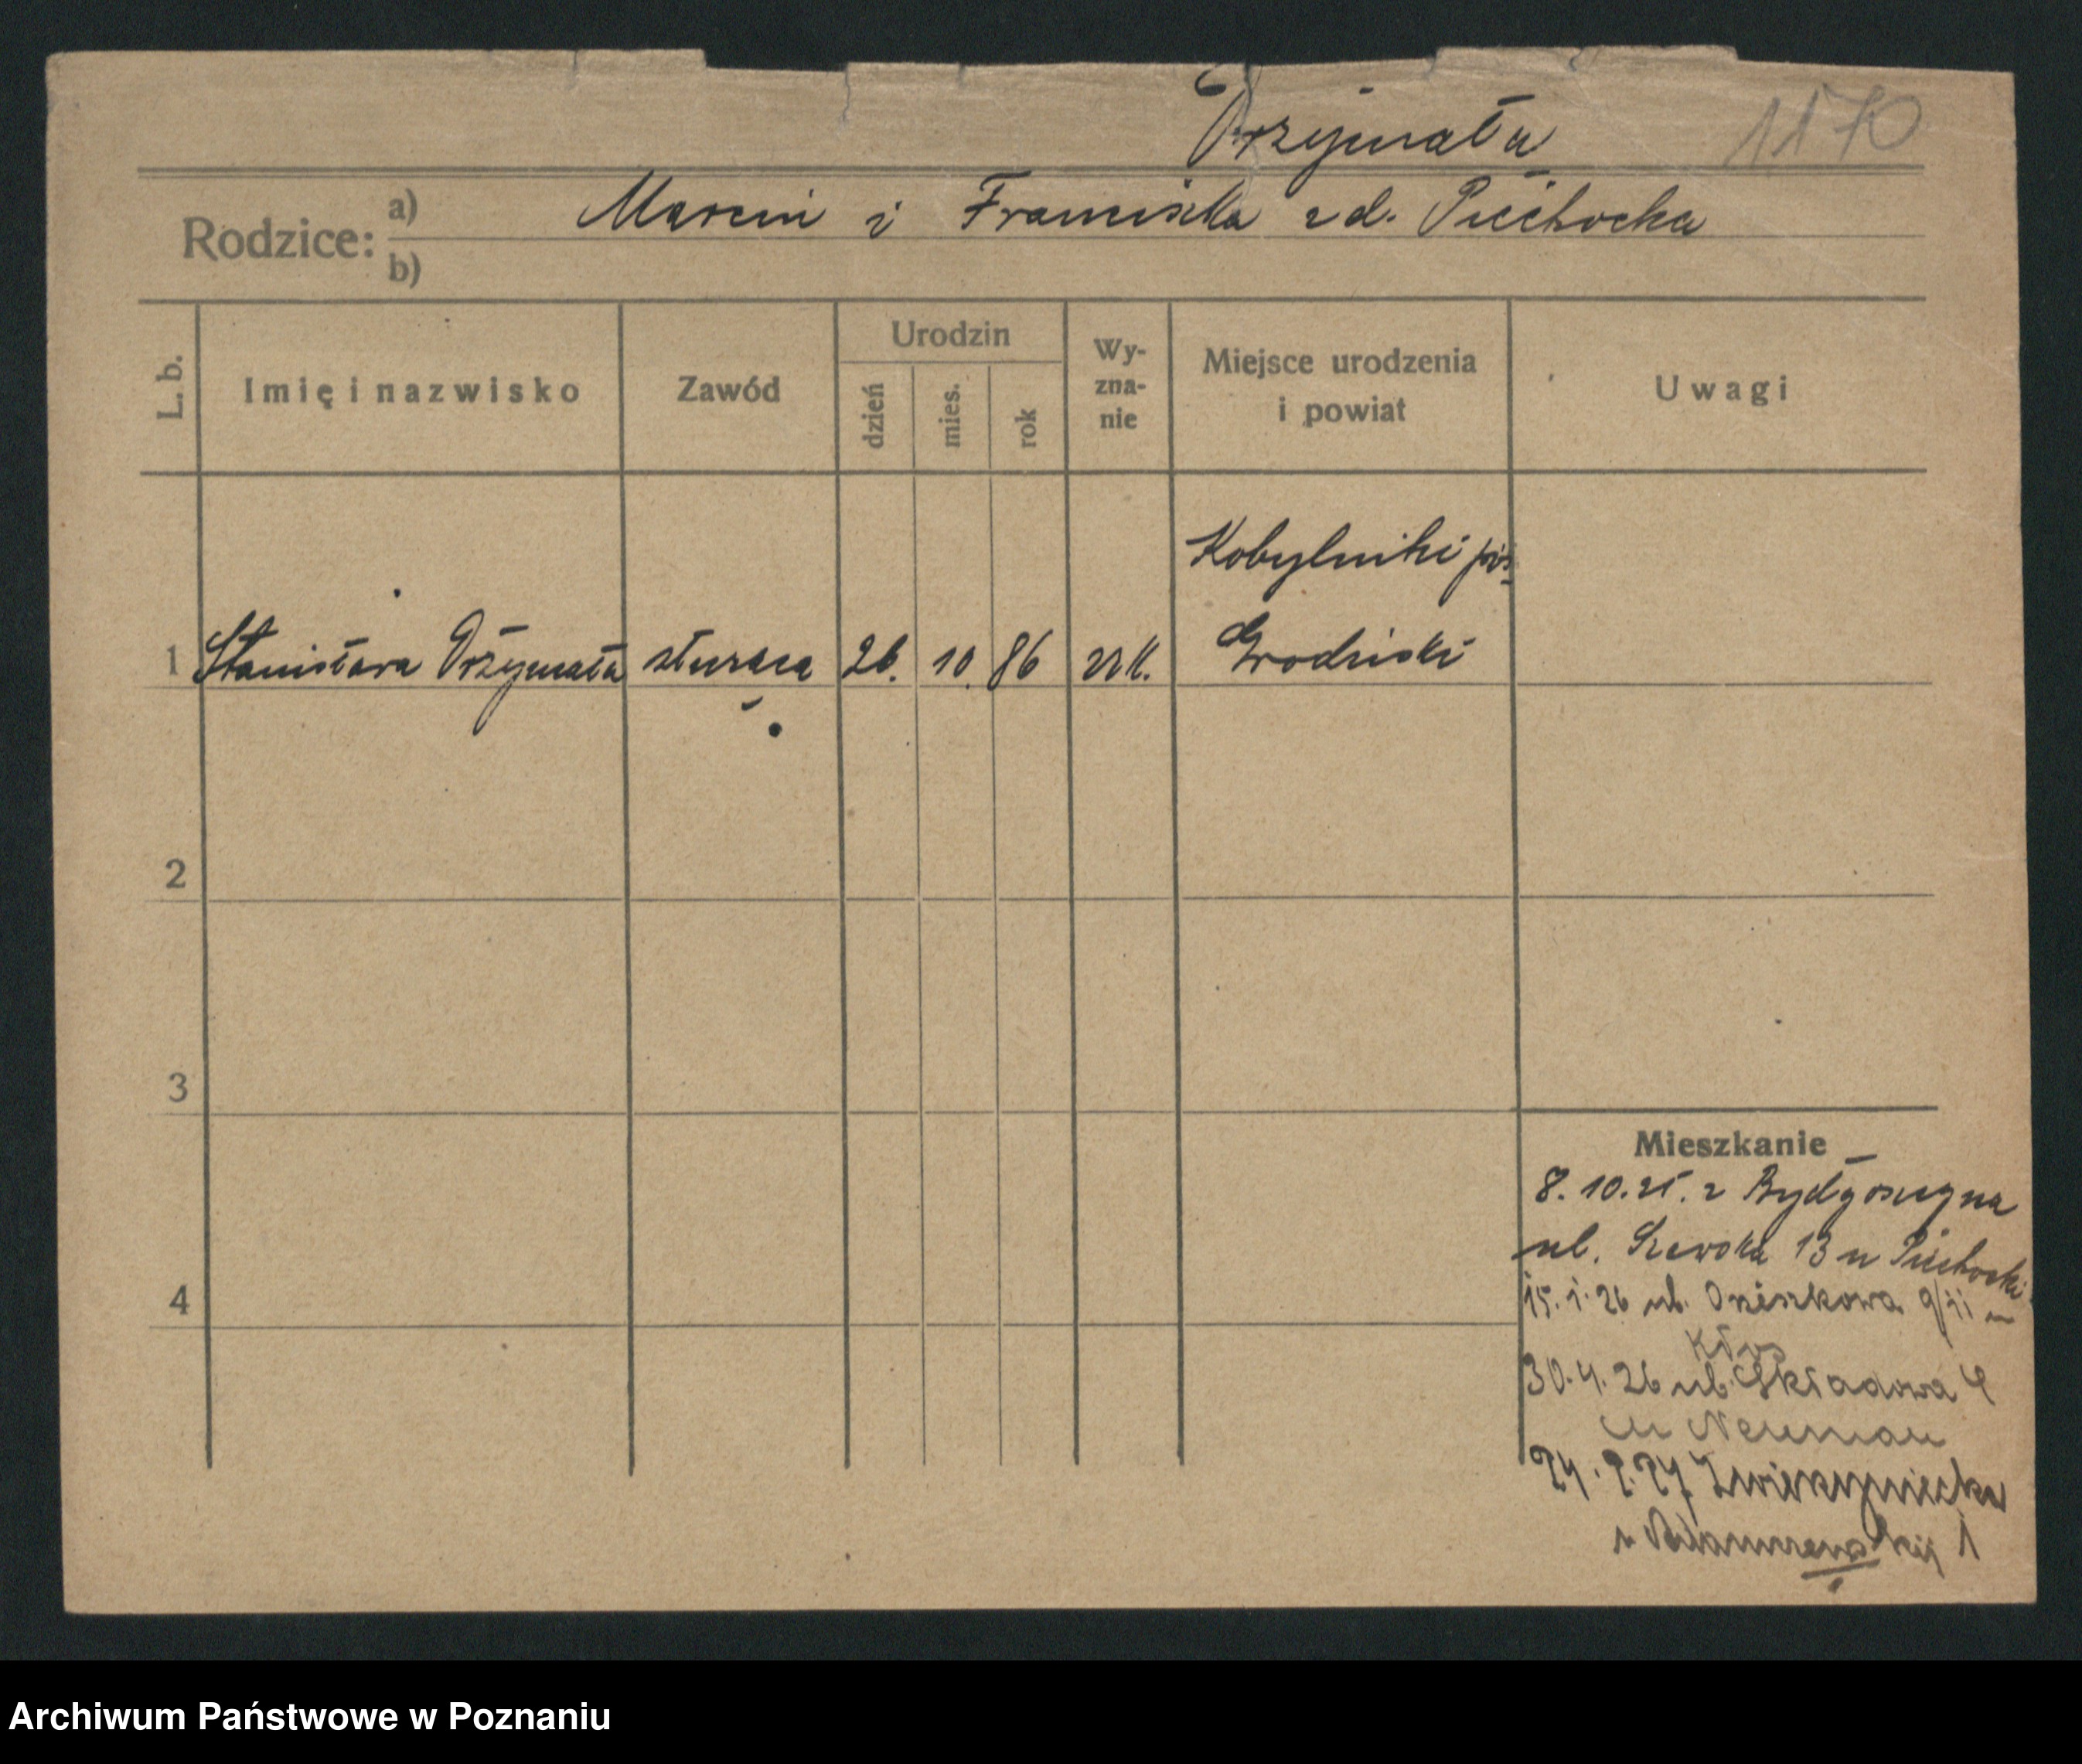 Drzymała 1170
Rodzice: a) Marcin i Franciszka zd. Piechocka
b)
L. b. Imię i nazwisko Zawód Urodzin dzień mies. rok Wy-zna-nie Miejsce urodzenia i powiat Uwagi
Kobylniki pow.
1 Stanisława Drzymała służąca 26. 10. 86 rzk. Grodziski
2
3
Mieszkanie
8. 10. 25. z Bydgoszczy na
ul. Szewska 13 u Piechocki
4
15. 1. 26 ul. Ogiszkowa 9/II u
Kłos
30. 4. 26 ul. Składowa 4
u Neuman
24. 2. 27 Zwierzyniecka
1
Archiwum Państwowe w Poznaniu